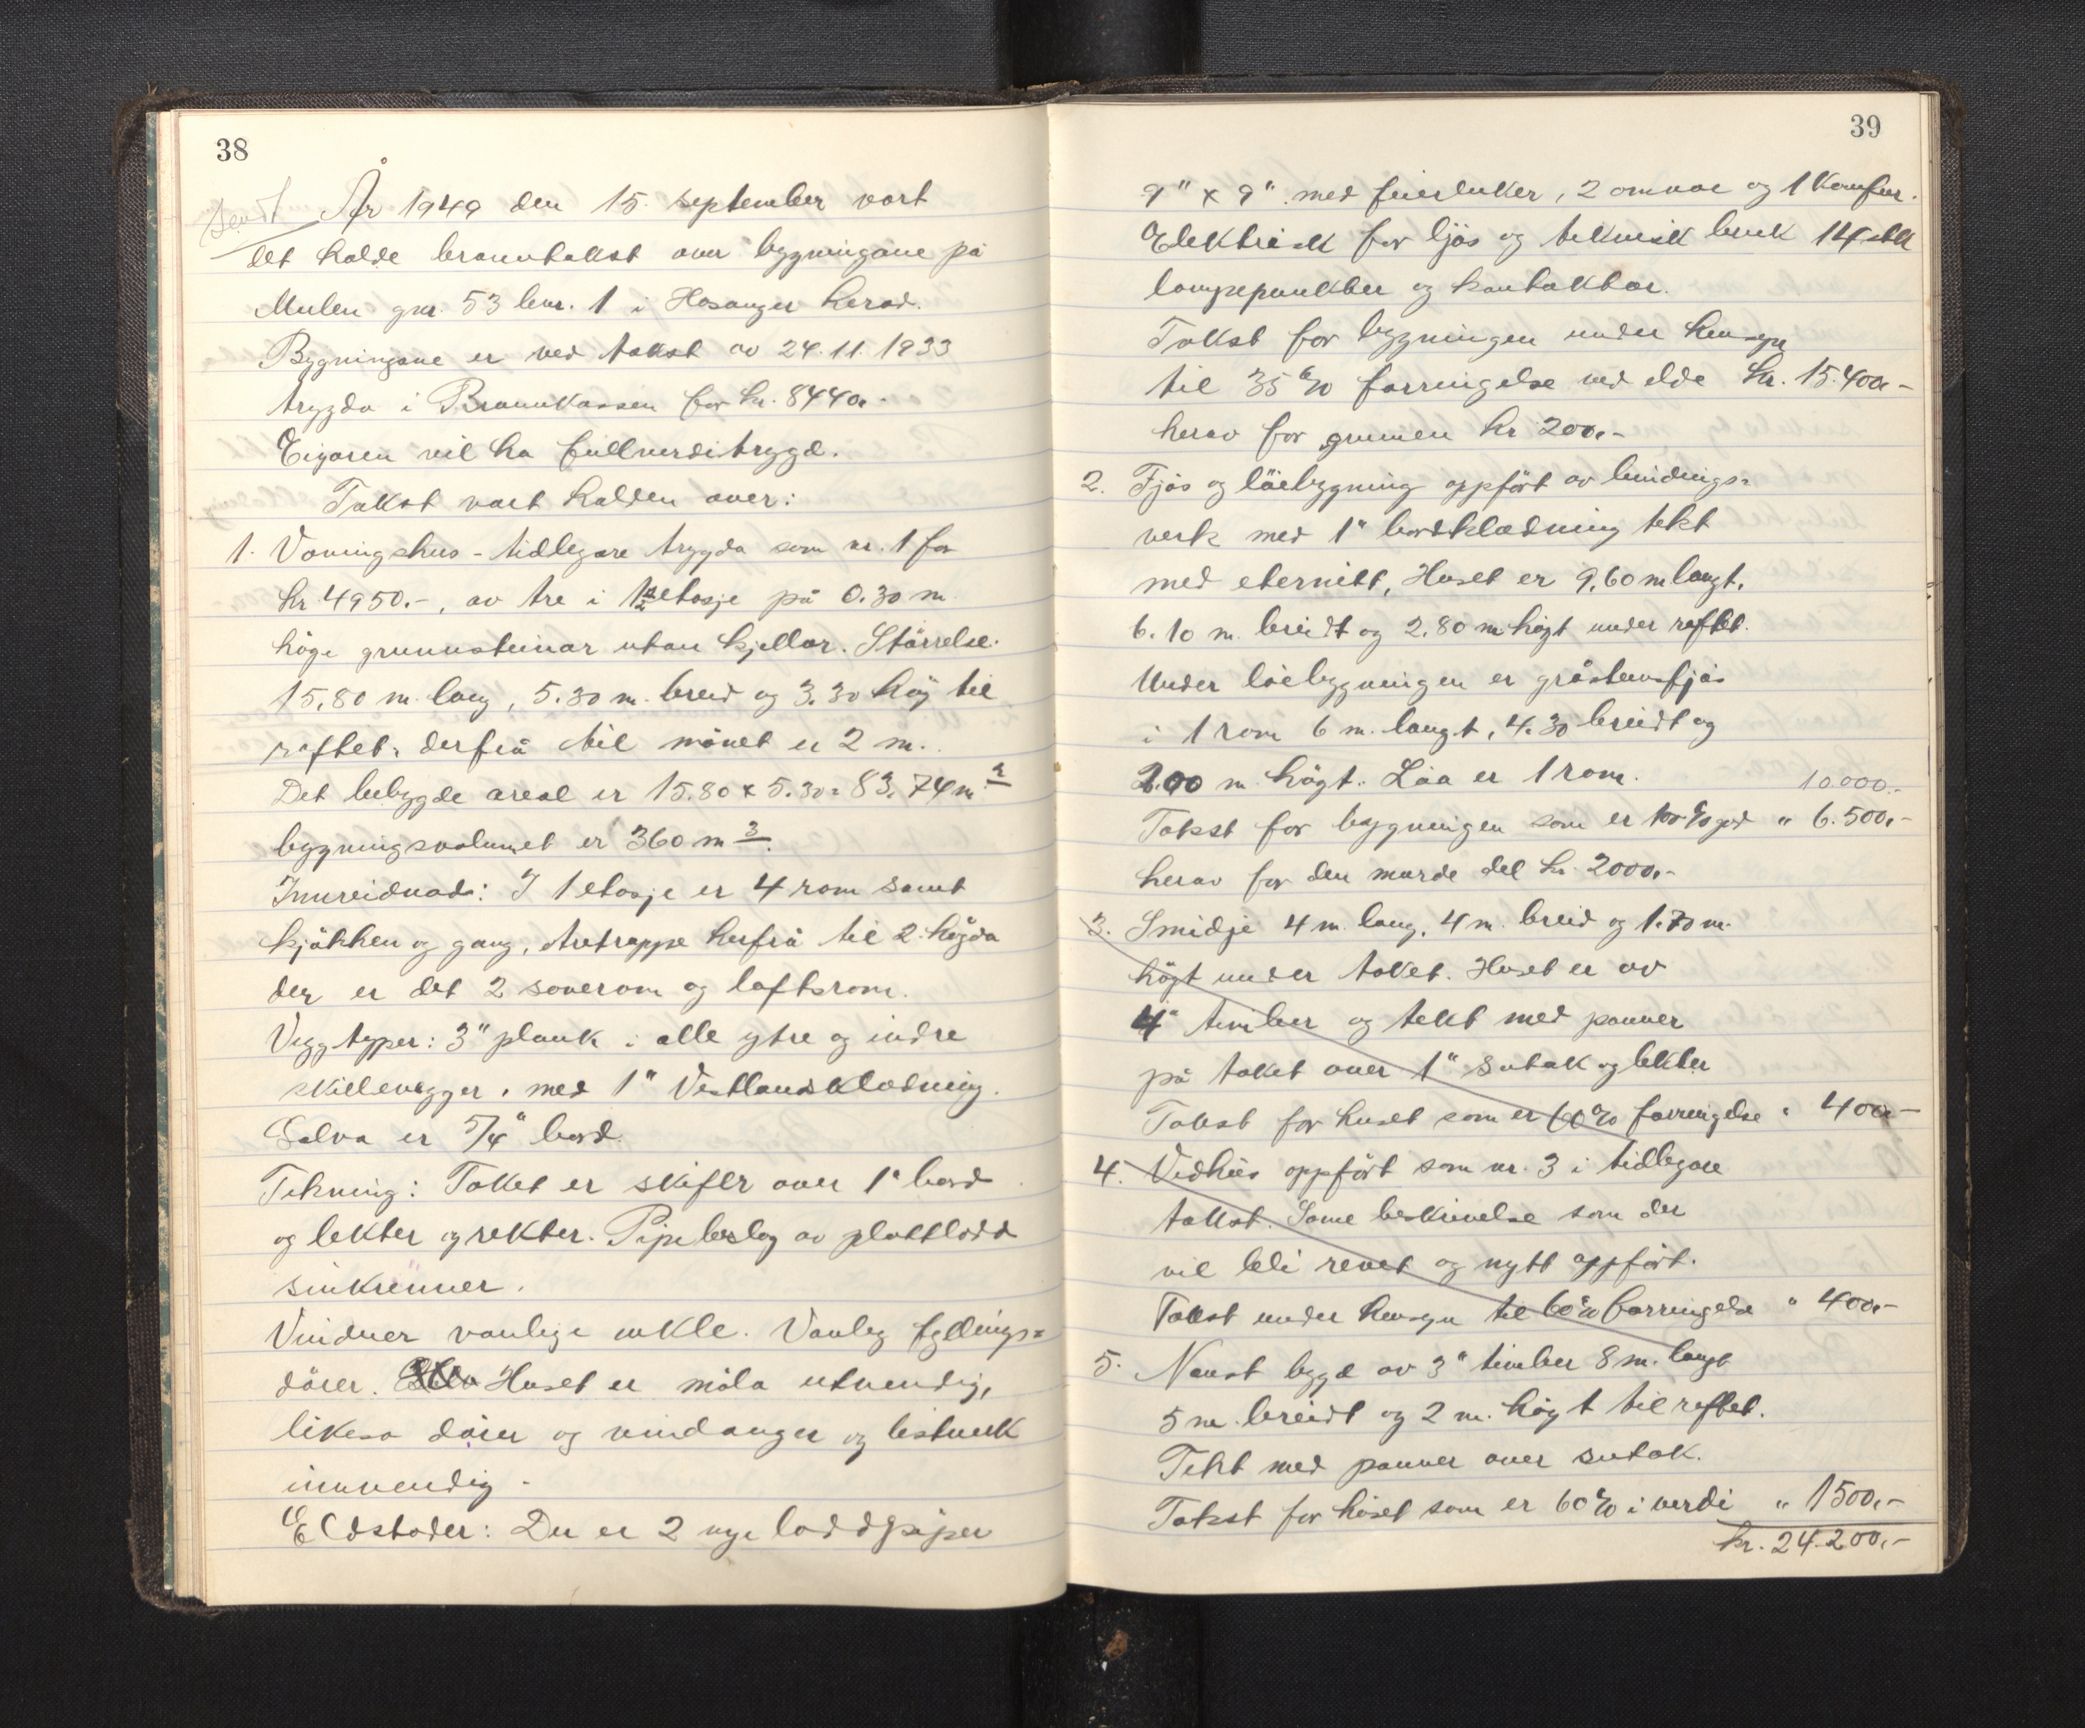 38
Sendt
År 1949 den 15. september vart
det halde branntakst over bygningane på
Mulen gnr. 53 bnr. 1 i Hosanger herad.
Bygningane er ved takst av 24.11.1933
trygda i Brannkassen for kr. 8440.-
Eigaren vil ha fullverditrygd.
Takst vart halden over:
1. Våningshus - tidlegare trygda som nr. 1 for
kr 4950.-, av tre i 1½ etasje på 0.30 m.
höge grunnsteinar utan kjellar. Störrelse:
15,80 m. lang, 5.30 m. breid og 3.30 höj til
raftet, derfrå til mönet er 2 m.
Det bebygde areal er 15.80 x 5.30 = 83,74 m²
bygningsvolumet er 360 m³.
Innreidnad: I 1 etasje er 4 rom samt
kjökken og gang, tretrappe herfrå til 2. högda
der er det 2 soverom og loftsrom.
Veggtyper: 3" plank i alle ytre og indre
skillevegger, med 1" Vestlandsklædning.
Golva er 5/4" bord.
Tekning: Taket er skifer over 1" bord
og lekter og rekter. Pipebeslag av plattlodd
sinkrenner.
Vinduer vanlige enkle. Vanleg fyllings=
dörer. Huset er måla utvendig,
likeso dörer og vindauger og listverk
innvendig.
Eldstader: Der er 2 nye loddpiper
39
9" x 9" med feierluker, 2 omnar og 1 komfur.
Elektrisk for ljös og teknisk bruk 14 stk
lampepunkter og kontaktar.
Takst for bygningen under hensyn
til 35% forringelse ved elde kr. 15.400.-
herav for grunnen kr 200.-
2. Fjös og löebygning oppfört av bindings=
verk med 1" bordklædning tekt
med eternitt, Huset er 9,60 m langt,
6.10 m. breidt og 2.80 m högt under raftet.
Under löebygningen er gråsteinsfjös
i 1 rom 6 m. langt, 4.30 breidt og
2.00 m. högt. Löa er 1 rom.
10.000.-
Takst for bygningen som er 100% god " 6.500.-
herav for den murde del kr. 2000.-
3. Smidje 4 m. lang, 4 m. breid og 1.70 m.
högt under taket. Huset er av
4" timber og tekt med panner
på taket over 1" sutak og lekter
Takst for huset som er 60% forringelse " 400.-
4. Vedhus oppfört som nr. 3 i tidlegare
takst. Same beskrivelse som der
vil bli revet og nytt oppfört.
Takst under hensyn til 60% forringelse " 400.-
5. Naust bygd av 3" timber 8 m. langt
5 m. breidt og 2 m. högt til raftet.
Tekt med panner over sutak.
Takst for huset som er 60% i verdi " 1500.-
kr. 24.200.-